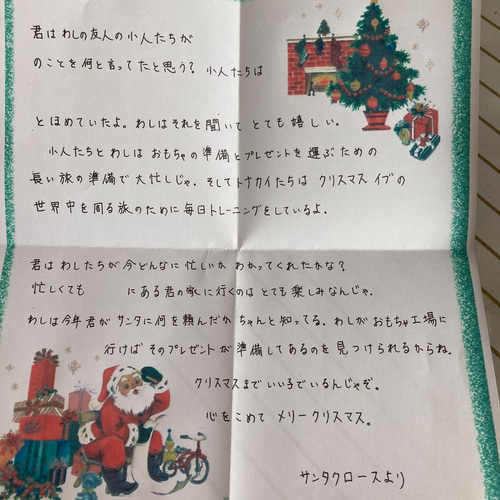 君はわしの友人の小人たちが
のことを何と言ってたと思う？小人たちは
とほめていたよ。わしはそれを聞いてとても嬉しい。
小人たちとわしはおもちゃの準備とプレゼントを選ぶための
長い旅の準備で大忙しじゃ。そしてトナカイたちはクリスマスイブの
世界中を周る旅のために毎日トレーニングをしているよ．
君はわしたちが今どんなに忙しいかわかってくれたかな？
忙しくても にある君の家に行くのはとても楽しみなんじゃ．
わしは今年君がサンタに何を頼んだかちゃんと知ってる．わしがおもちゃ工場に
行けばそのプレゼントが準備してあるのを見つけられるからね。
クリスマスまでいい子でいるんじゃぞ。
心をこめて メリークリスマス。
サンタクロースより